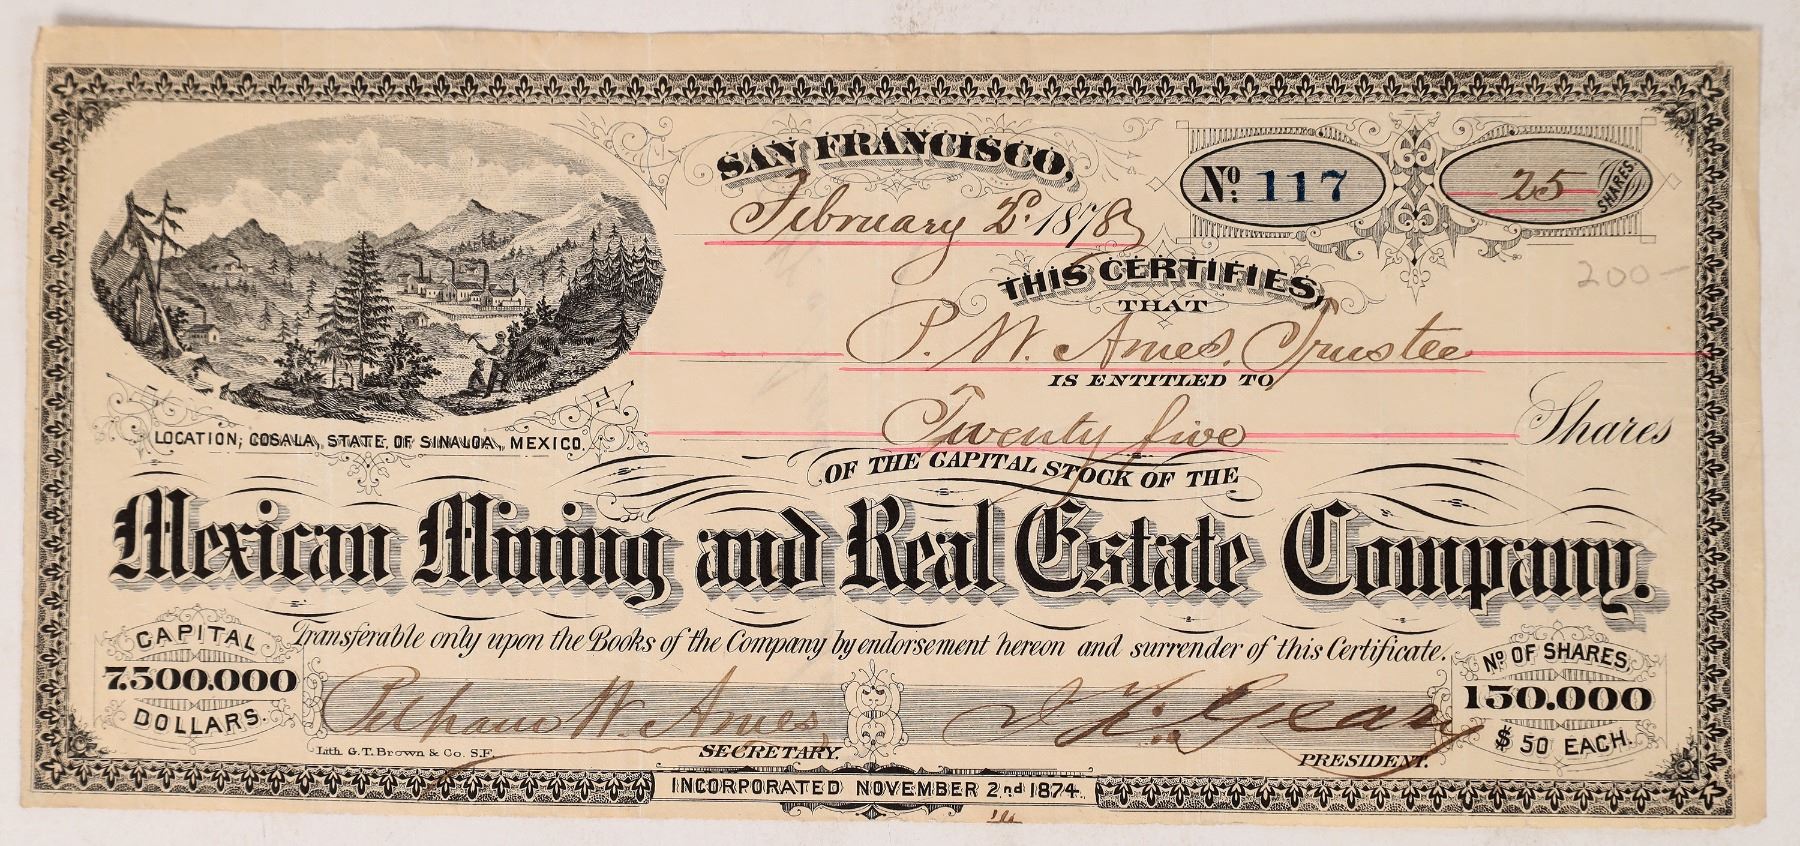 SAN FRANCISCO,
February 2d. 1878
No. 117
25 SHARES
200-
THIS CERTIFIES,
THAT
P. W. Ames, Trustee
IS ENTITLED TO
Twenty five Shares
LOCATION; COSALA, STATE OF SINALOA, MEXICO.
OF THE CAPITAL STOCK OF THE
Mexican Mining and Real Estate Company.
Transferable only upon the Books of the Company by endorsement hereon and surrender of this Certificate.
CAPITAL
7.500.000
DOLLARS.
Pelham W. Ames
SECRETARY.
Geary
PRESIDENT.
No. OF SHARES,
150.000
$50 EACH.
Lith. G.T. Brown & Co. S.F.
INCORPORATED NOVEMBER 2nd 1874.